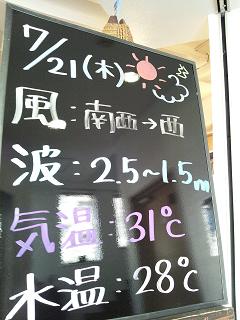 7/21(木)
風:南西→西
波:2.5~1.5m
気温:31℃
水温:28℃